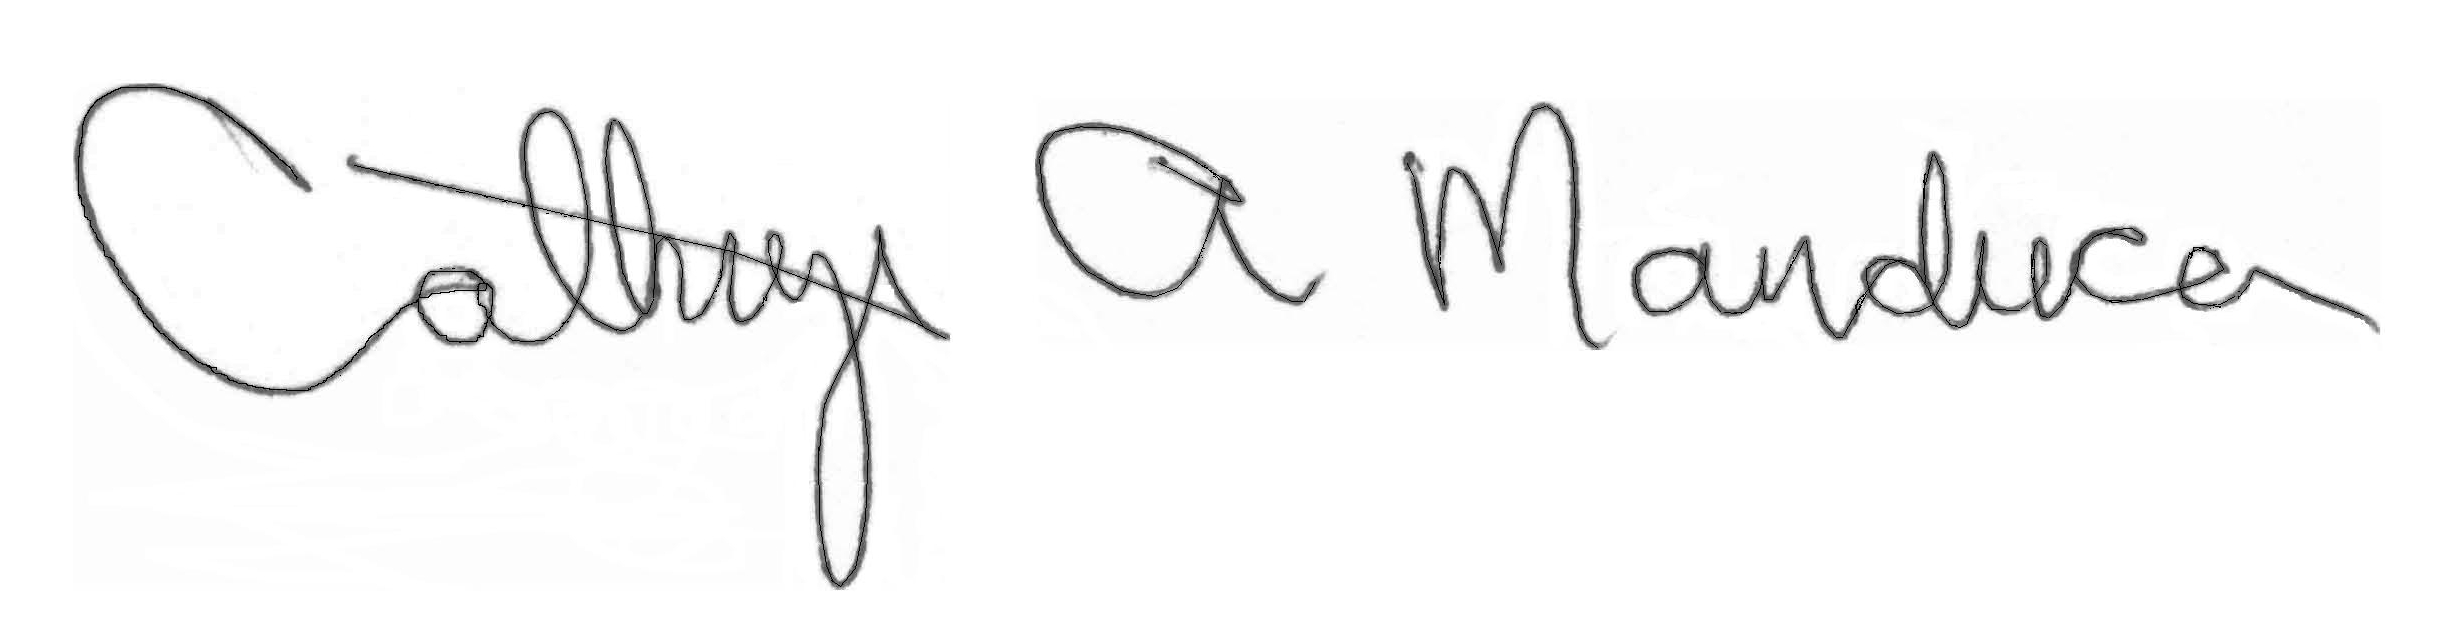 Cathryn A Manduca